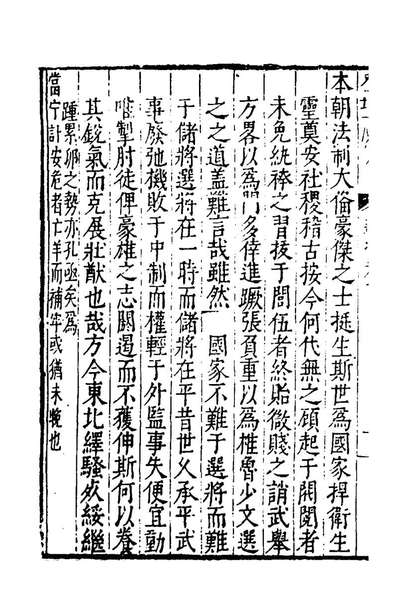 本朝法制大俻豪傑之士挺生斯世爲國家捍衛生
靈奠安社稷稽古按今何代無之顧起于閥閱者
未免紈袴之習拔于閭伍者終貽微賤之誚武舉
方畧以爲門多倖進蹶張負重以爲椎魯少文選
之之道蓋難言哉雖然　國家不難于選將而難
于儲將選將在一時而儲將在平昔世久承平武
事廢弛機敗于中制而權輕于外監事失便宜動
掣肘徒俾豪雄之志閼遏而不獲伸斯何以養
其銳氣而克展壯猷也哉方今東北繹騷欵綏繼
踵累卵之勢亦孔亟矣爲
當宁計安危者亡羊而補牢或猶未晚也